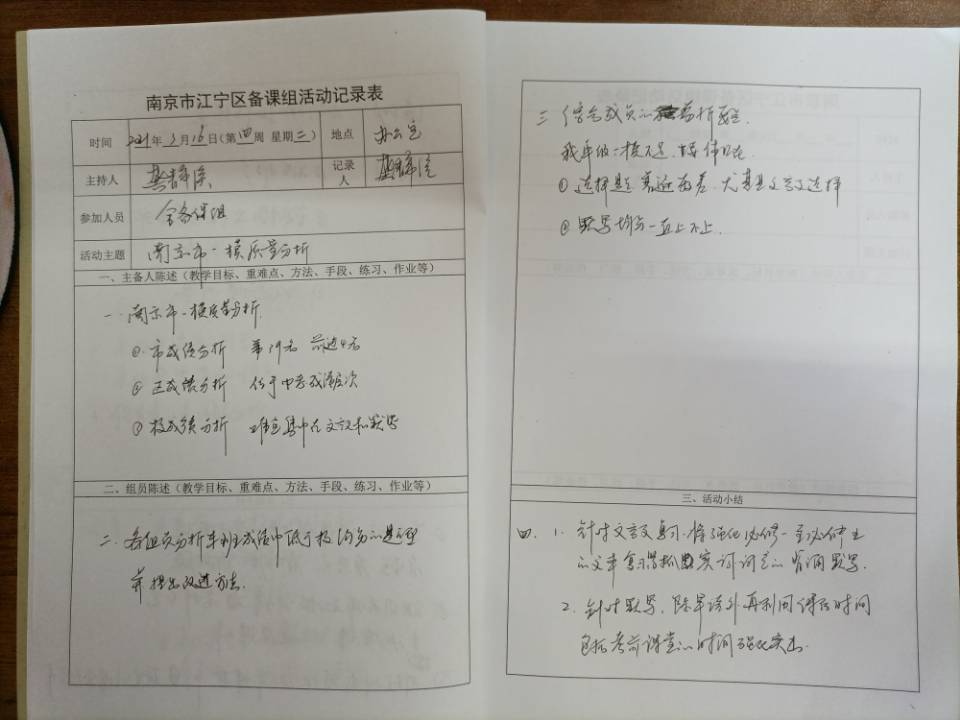 南京市江宁区备课组活动记录表
时间 2021年3月16日(第四周 星期二) 地点 办公室
主持人 记录人
参加人员 全备课组
活动主题 南京市一模质量分析
一、主备人陈述(教学目标、重难点、方法、手段、练习、作业等)
一、南京市一模质量分析
①市成绩分析 第19名 前进4名
②区成绩分析 位于中等或潜层次
③校成绩分析 难点集中在文言和默写
二、组员陈述(教学目标、重难点、方法、手段、练习、作业等)
二、各组员分析本班成绩中低于校均分的题型
并提出改进方法
三
我年级一模不足
①选择题 尤其是文言文选择
②默写均分一直上不上
三、活动小结
四、1. 针对文言文复习,将强化必修一至必修五
的文章复习 实词词意的 默写
2. 针对默写,除早读外再利用 时间
包括考前课堂的时间强化突击